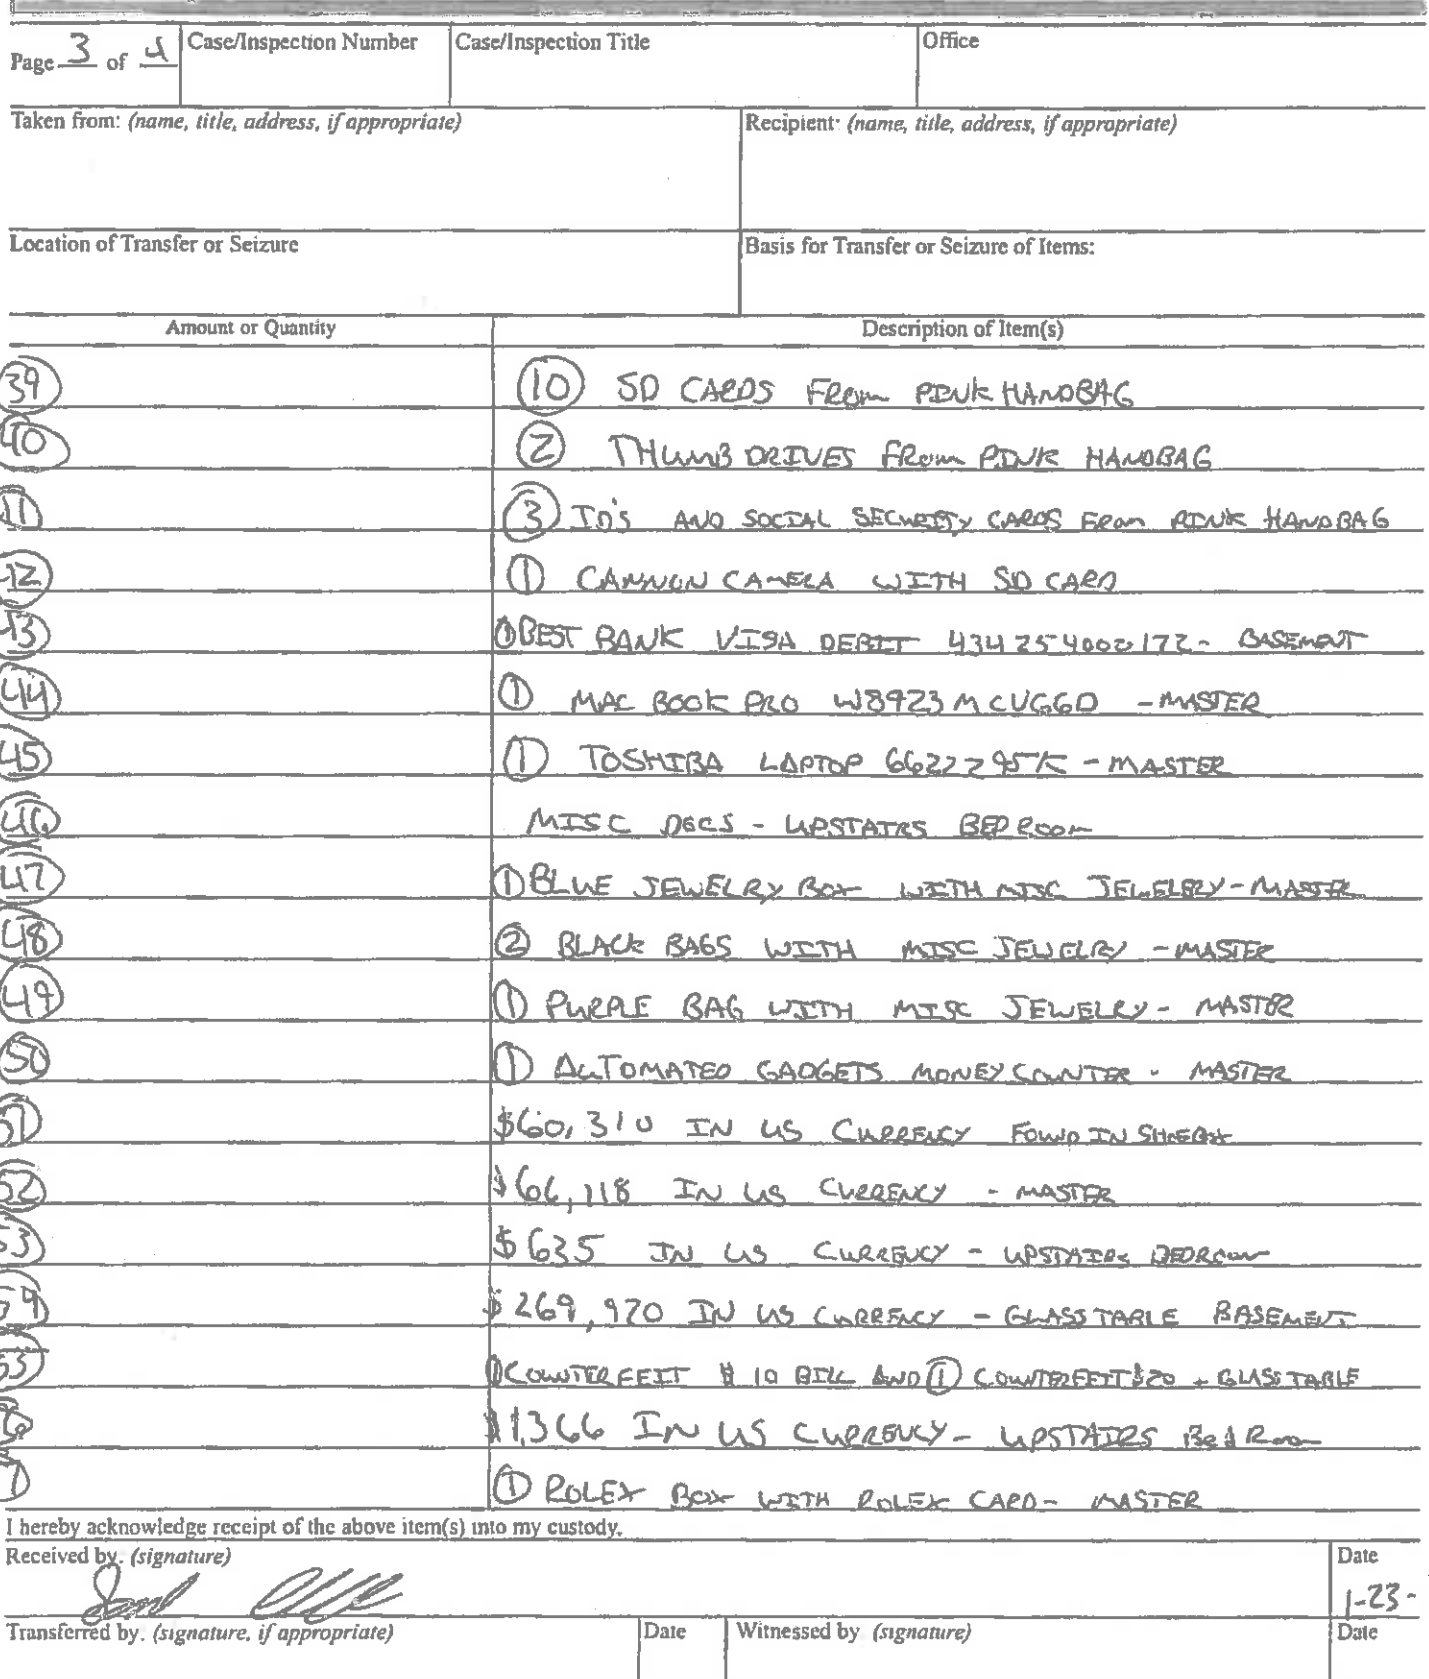 Page 3 of 4 Case/Inspection Number Case/Inspection Title Office
Taken from: (name, title, address, if appropriate) Recipient: (name, title, address, if appropriate)
Location of Transfer or Seizure Basis for Transfer or Seizure of Items:
Amount or Quantity Description of Item(s)
39 10 SD CARDS FROM PINK HANDBAG
40 2 THUMB DRIVES FROM PINK HANDBAG
41 3 ID'S AND SOCIAL SECURITY CARDS FROM PINK HANDBAG
42 1 CANNON CAMERA WITH SD CARD
43 1 BEST BANK VISA DEBIT - BASEMENT
44 1 MAC BOOK PRO W8923MCUGGD - MASTER
45 1 TOSHIBA LAPTOP 6622295K - MASTER
46 MISC DOCS - UPSTAIRS BEDROOM
47 1 BLUE JEWELRY BOX WITH MISC JEWELRY - MASTER
48 2 BLACK BAGS WITH MISC JEWELRY - MASTER
49 1 PURPLE BAG WITH MISC JEWELRY - MASTER
50 1 AUTOMATED GADGETS MONEY COUNTER - MASTER
51 $60,310 IN US CURRENCY FOUND IN SHOEBOX
52 $66,118 IN US CURRENCY - MASTER
53 $635 IN US CURRENCY - UPSTAIRS BEDROOM
54 $269,920 IN US CURRENCY - GLASS TABLE BASEMENT
55 1 COUNTERFEIT $10 BILL AND 1 COUNTERFEIT $20 - GLASS TABLE
6 $1,366 IN US CURRENCY - UPSTAIRS BedRoom
7 1 ROLEX BOX WITH ROLEX CARD - MASTER
I hereby acknowledge receipt of the above item(s) into my custody.
Received by. (signature) Date
1-23-
Transferred by. (signature, if appropriate) Date Witnessed by (signature) Date